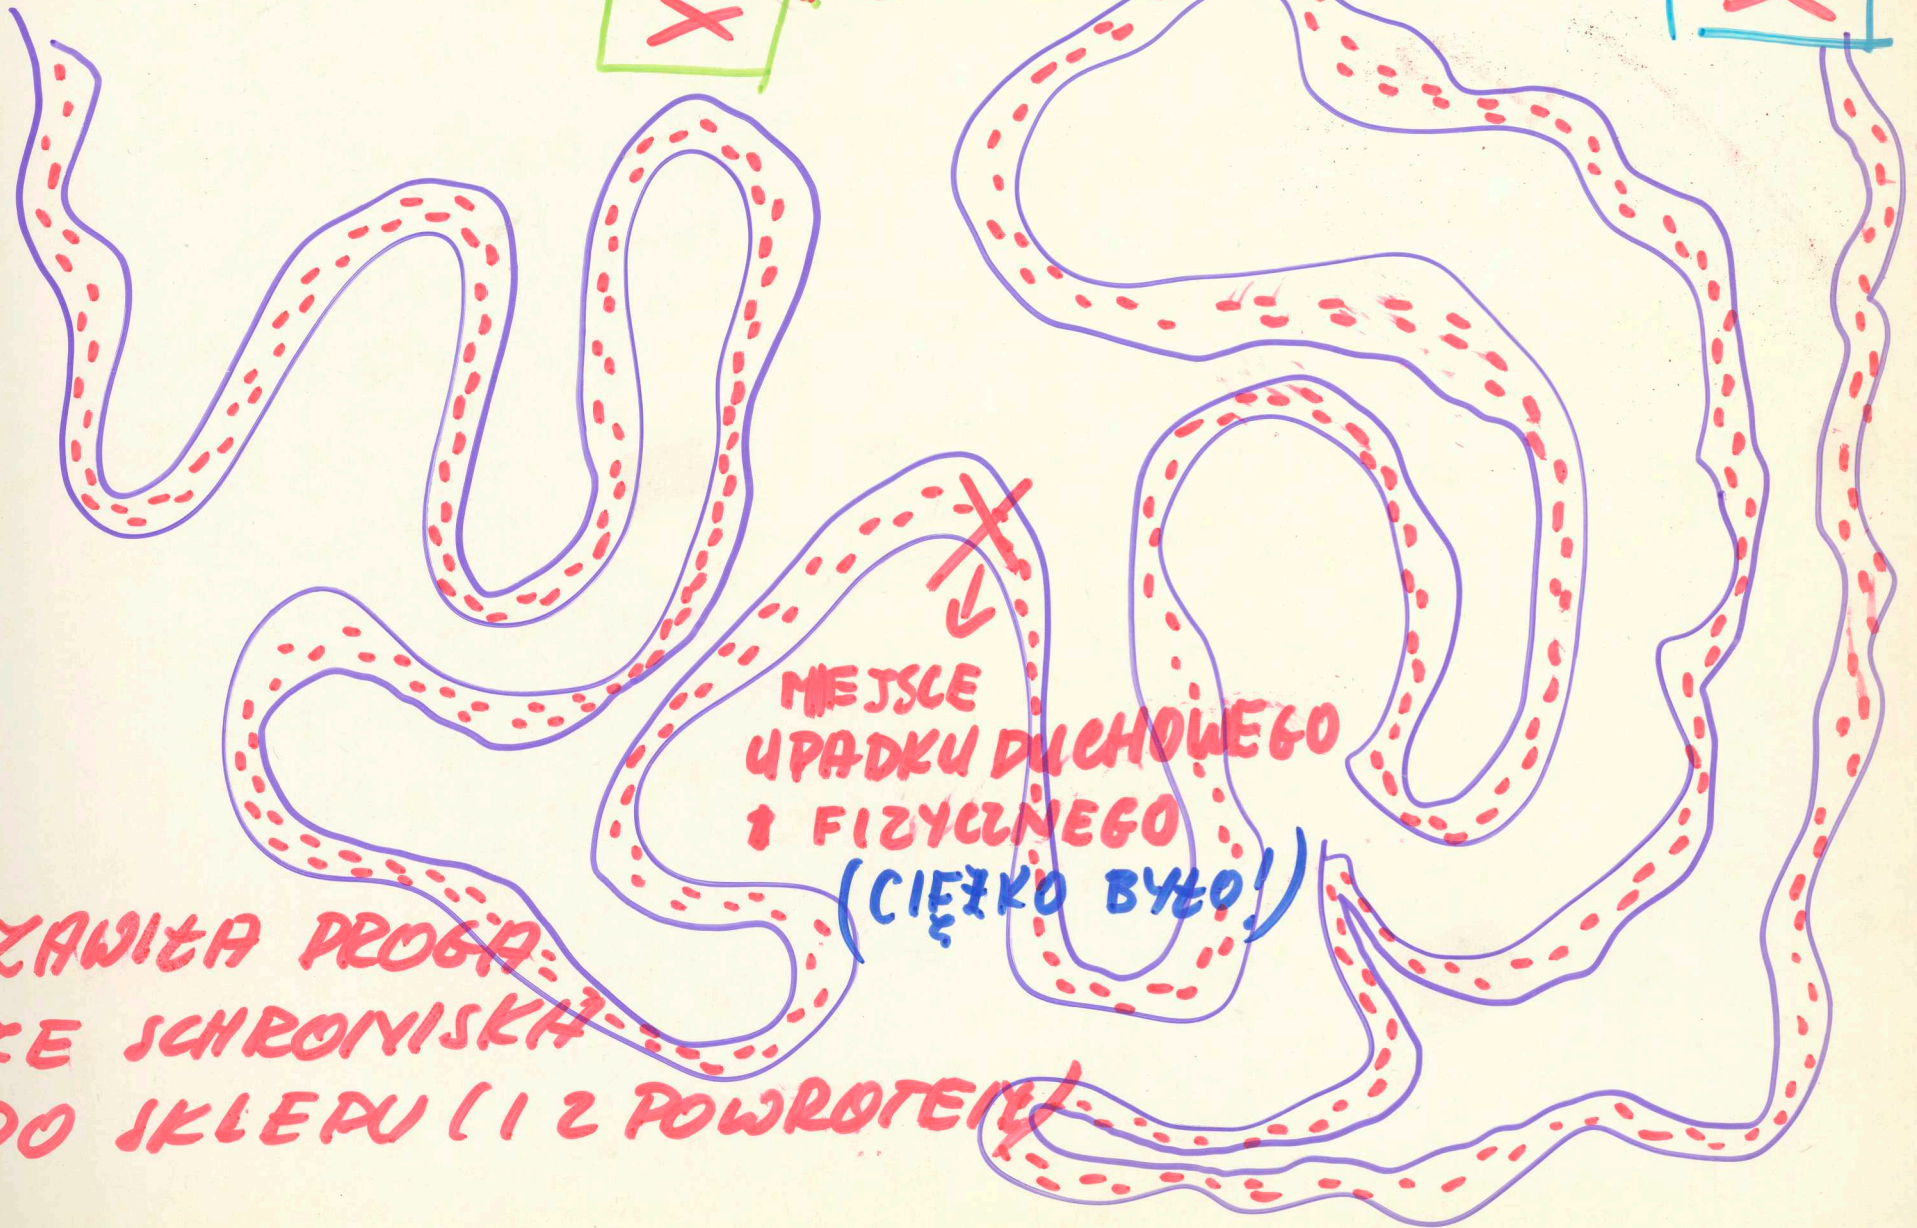 MIEJSCE
UPADKU DUCHOWEGO
I FIZYCZNEGO
(CIĘŻKO BYŁO!)
ZAWIŁA DROGA
ZE SCHRONISKA
DO SKLEPU (I Z POWROTEM)